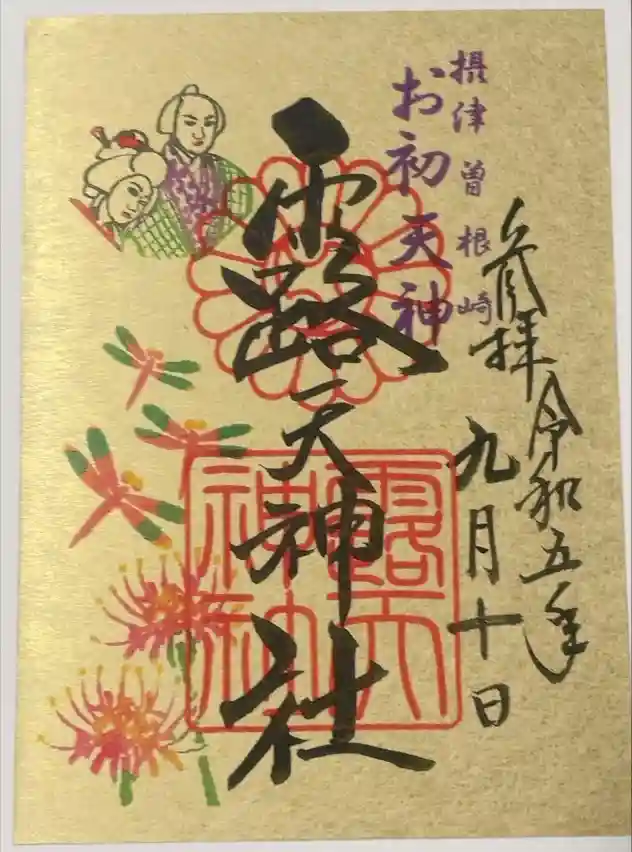 摂津曽根崎
お初天神
奉拝
令和五年
九月十日
露天神社
露天
神社